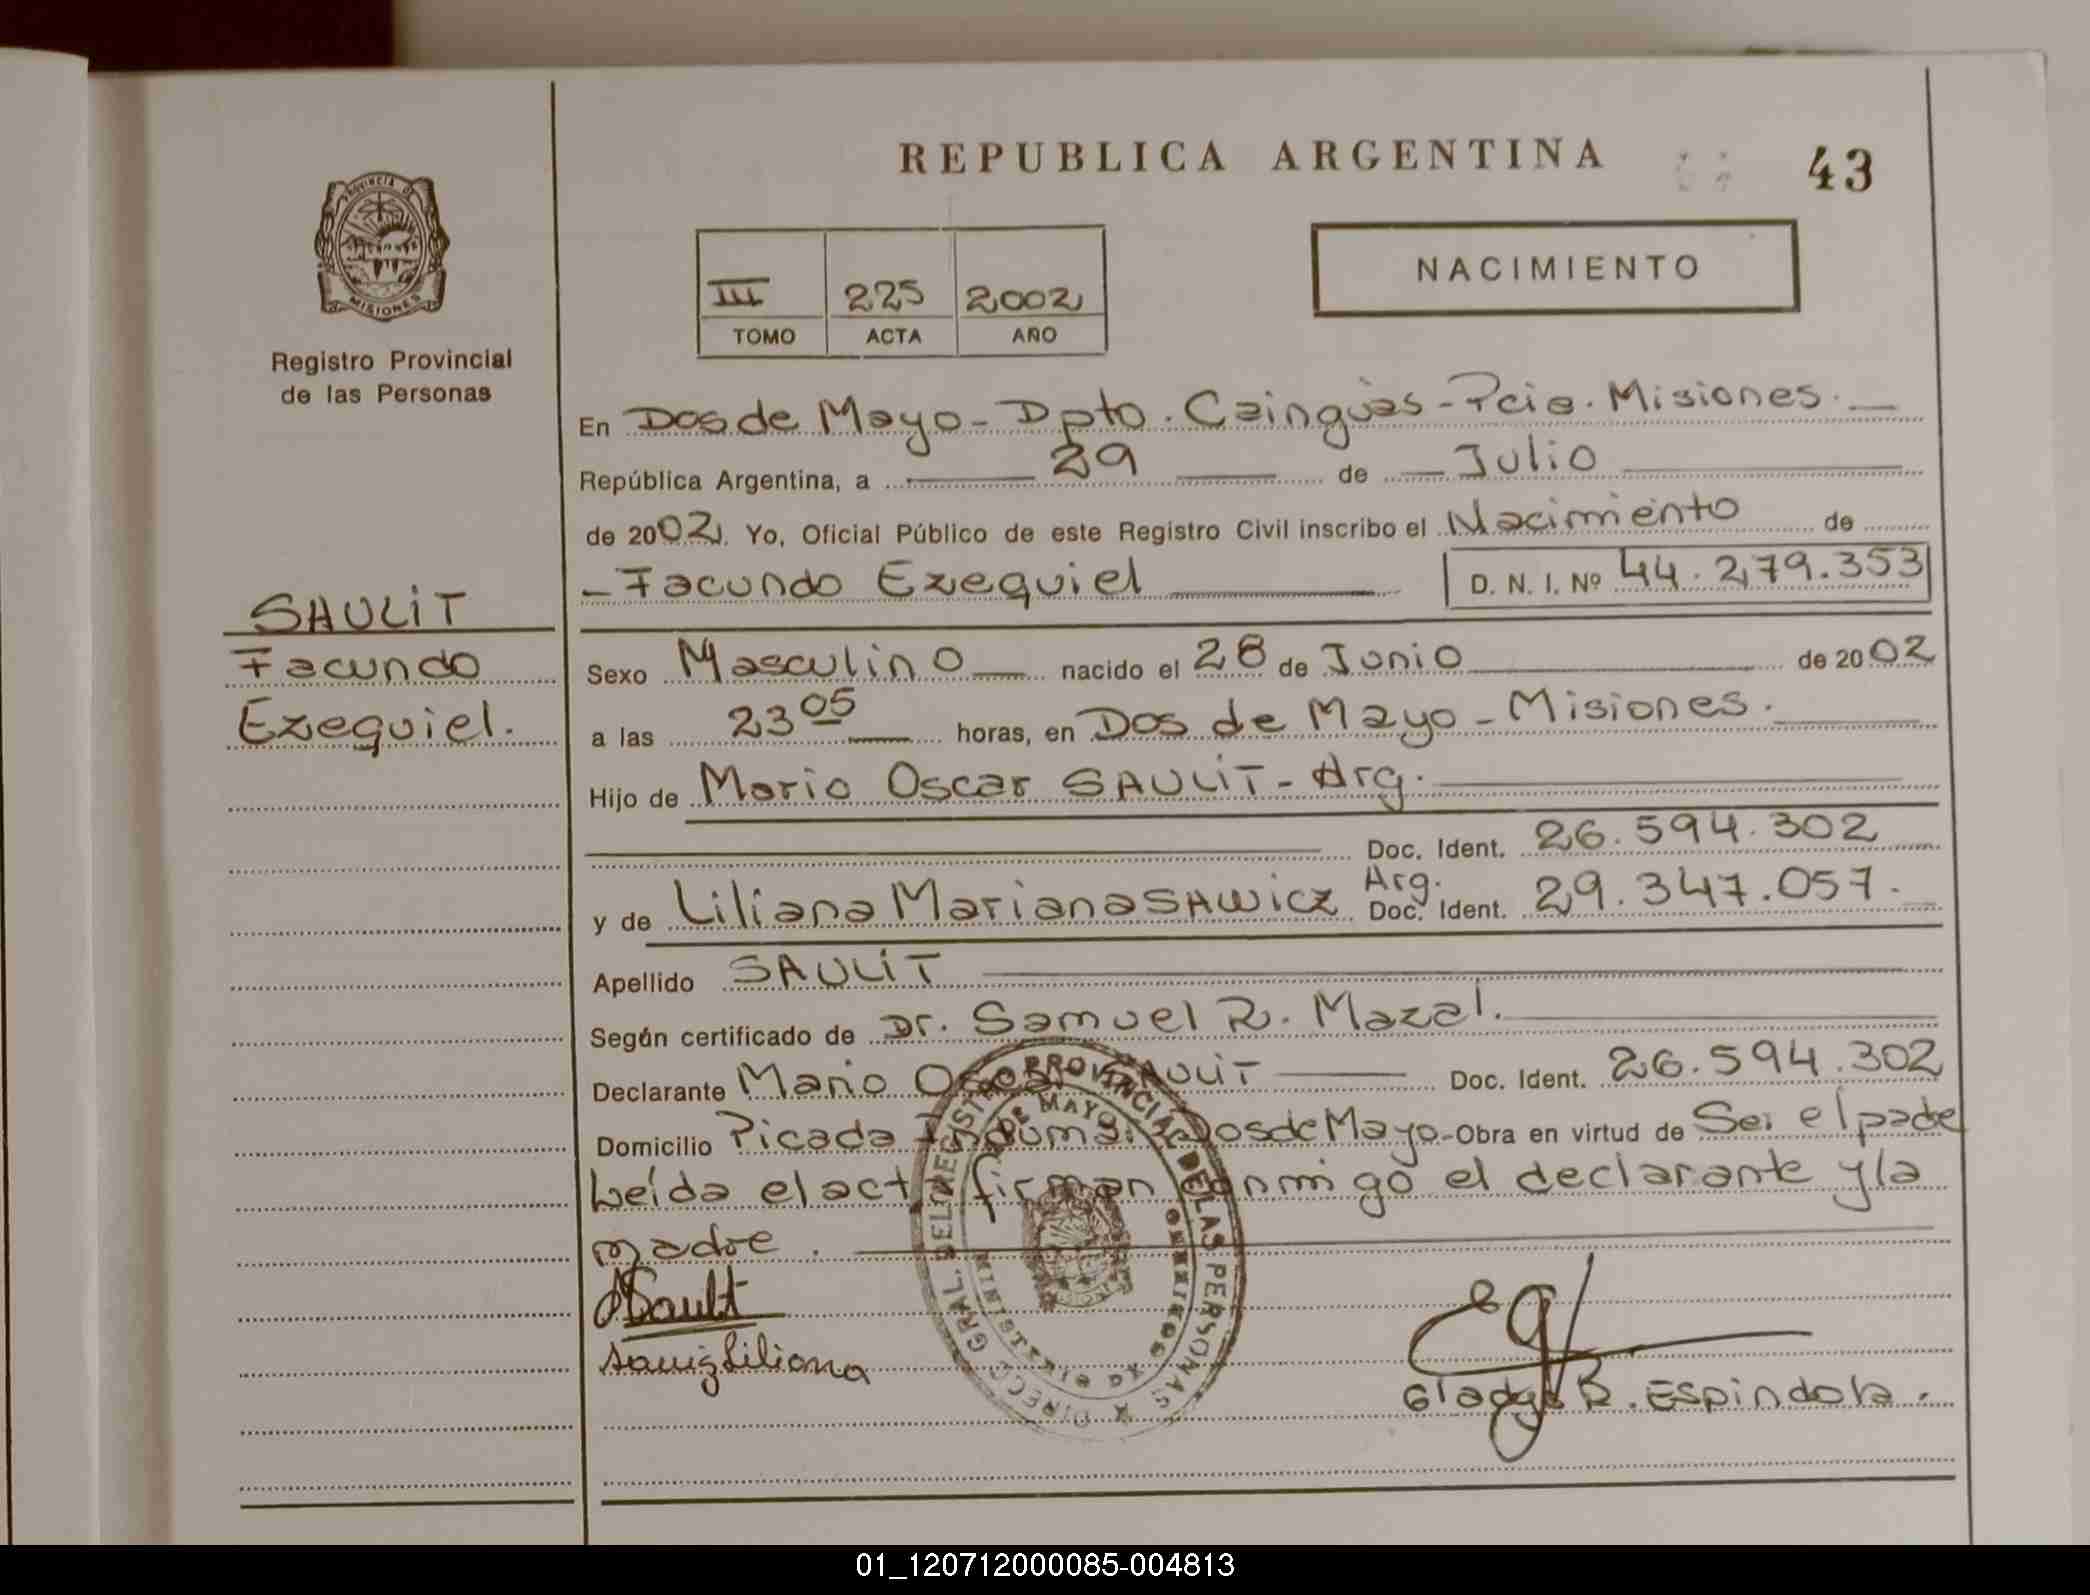 REPUBLICA ARGENTINA
43
NACIMIENTO
III 225 2002
TOMO ACTA AÑO
PROVINCIA DE
MISIONES
Registro Provincial
de las Personas
SAULIT
Facundo
Ezequiel.
En Dos de Mayo - Dpto. Cainguàs - Pcia. Misiones.
República Argentina, a 29 de Julio
de 2002. Yo, Oficial Público de este Registro Civil inscribo el Nacimiento de
Facundo Ezequiel D. N. I. Nº 44.279.353
Sexo Masculino nacido el 28 de Junio de 2002
a las 23 05 horas, en Dos de Mayo - Misiones.
Hijo de Mario Oscar SAULIT - Arg.
Doc. Ident. 26.594.302
y de Liliana Mariana SAWICZ Arg. Doc. Ident. 29.347.057.
Apellido SAULIT
Según certificado de Dr. Samuel R. Mazal.
Declarante Mario Oscar SAULIT Doc. Ident. 26.594.302
Domicilio Picada Dos de Mayo - Obra en virtud de Ser el padre
Leída el acta firman conmigo el declarante y la
madre.
Saulit
Liliana
Gladys R. Espindola.
DIRECC. GRAL. DEL REGISTRO PROVINCIAL DE LAS PERSONAS
DOS DE MAYO
01_120712000085-004813